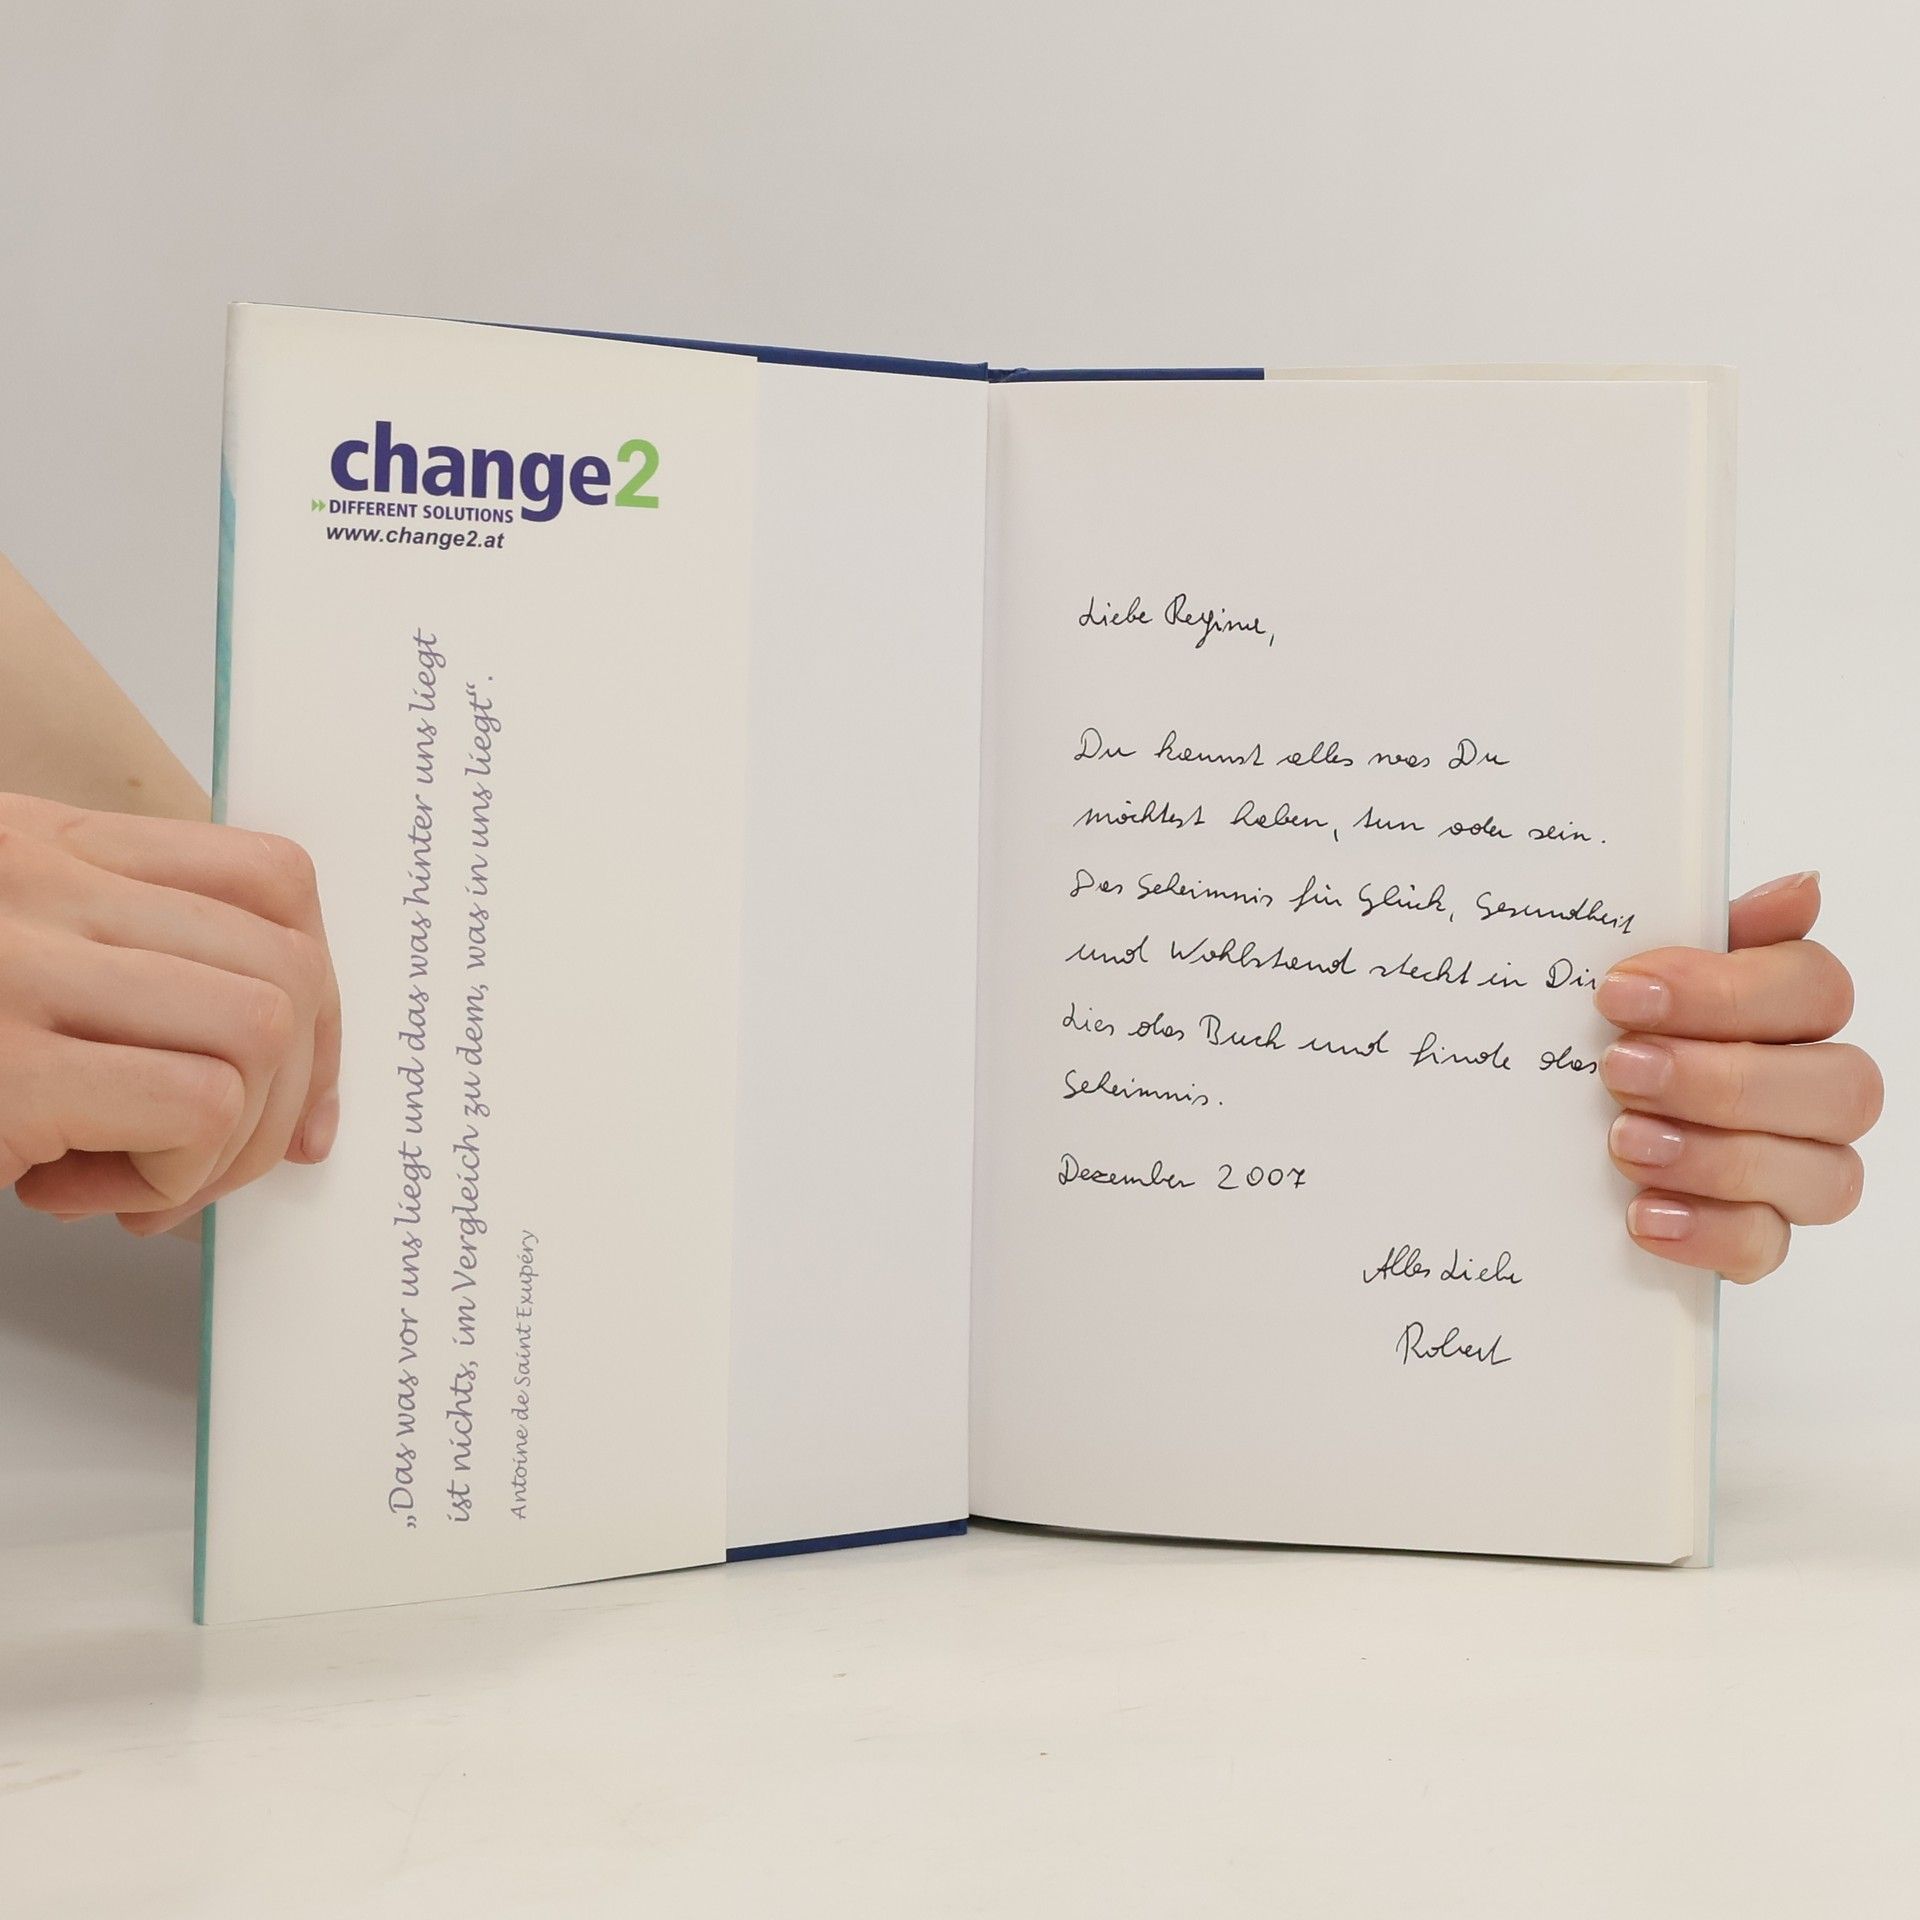 change2
DIFFERENT SOLUTIONS
www.change2.at
„Das was vor uns liegt und das was hinter uns liegt
ist nichts, im Vergleich zu dem, was in uns liegt“.
Antoine de Saint Exupéry
Liebe Regine,
Du kannst alles was Du
möchtest haben, tun oder sein.
Das Geheimnis für Glück, Gesundheit
und Wohlstand steckt in Dir
Lies das Buch und finde das
Geheimnis.
Dezember 2007
Alles Liebe
Robert